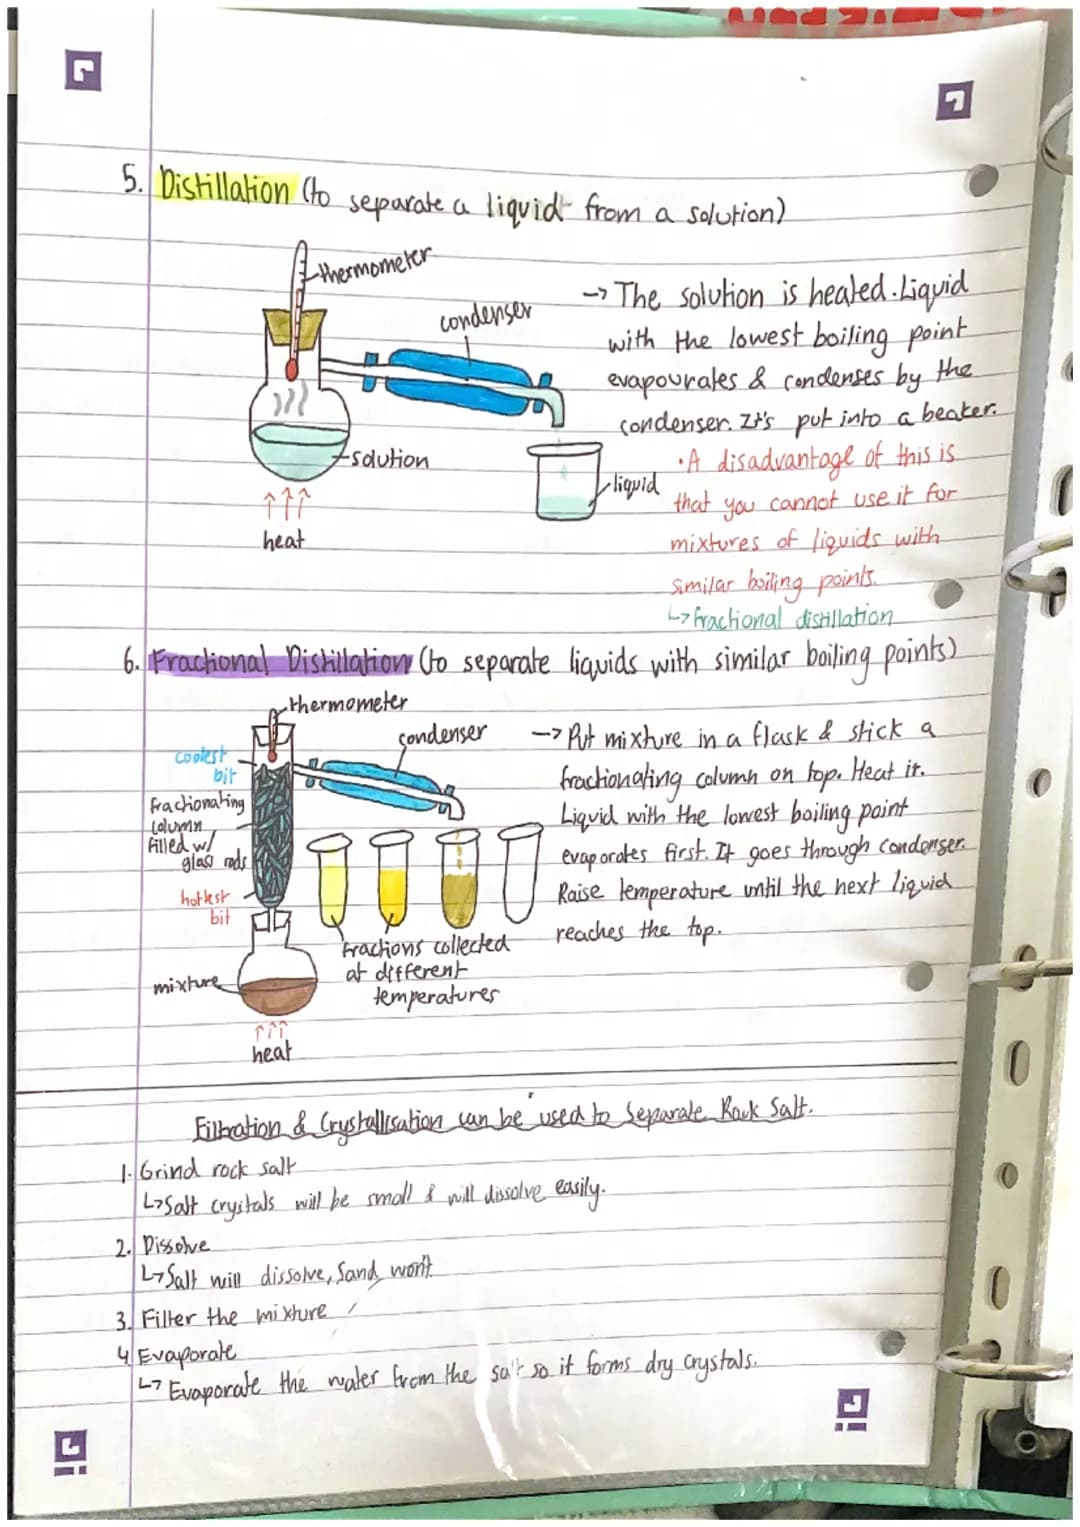 5. Distillation (to separate a liquid from a solution)
thermometer
condenser
solution
heat
liquid
-> The solution is heated. Liquid
with the lowest boiling point
evapourates & condenses by the
condenser. It's put into a beaker.
• A disadvantage of this is
that you cannot use it for
mixtures of liquids with
similar boiling points.
↳ fractional distillation
6. Fractional Distillation (to separate liquids with similar boiling points)
thermometer
condenser
coolest
bit
fractionating
column
filled w/
glass rods
hottest
bit
mixture
heat
fractions collected
at different
temperatures
-> Put mixture in a flask & stick a
fractionating column on top. Heat it.
Liquid with the lowest boiling point
evaporates first. It goes through condenser.
Raise temperature until the next liquid
reaches the top.
Filtration & Crystallisation can be used to Separate Rock Salt.
1. Grind rock salt
↳ Salt crystals will be small & will dissolve easily.
2. Dissolve
↳ Salt will dissolve, Sand won't
3. Filter the mixture
4. Evaporate
↳ Evaporate the water from the salt so it forms dry crystals.